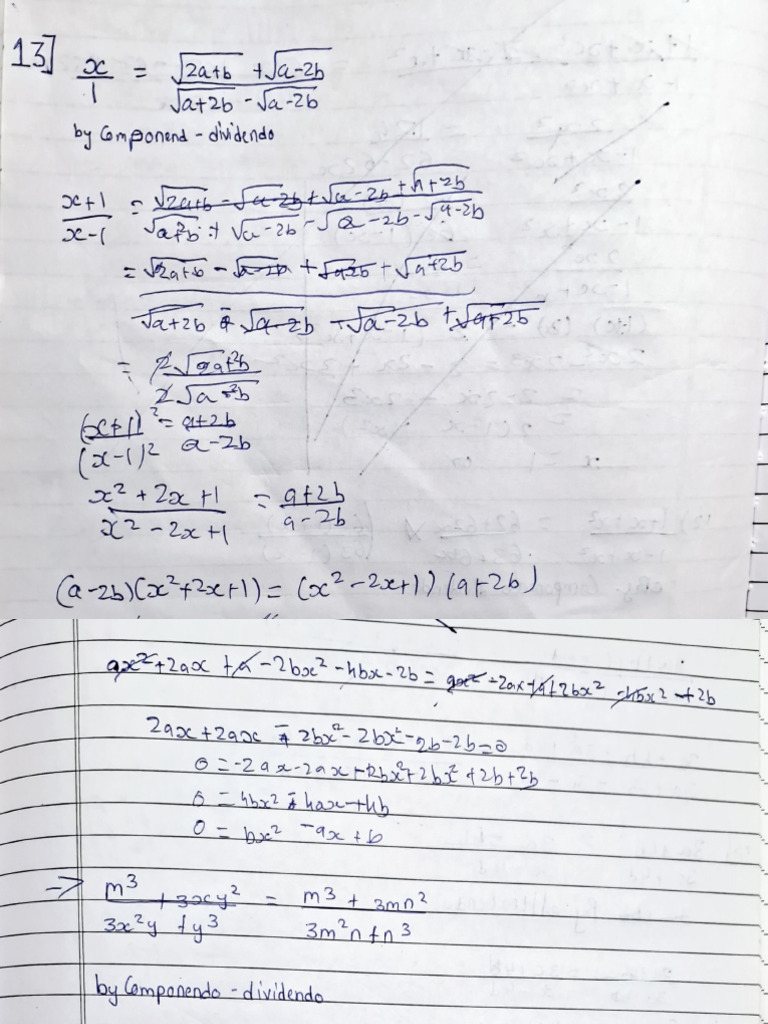 13] x/1 = √2a+b + √a-2b / √a+2b - √a-2b
by Componend - dividendo
x+1/x-1 = √2a+b - √a-2b + √a-2b + √a+2b / √a+2b + √a-2b - √a-2b - √a-2b
= √2a+b - √a-2b + √a-2b + √a+2b / √a+2b - √a-2b - √a-2b + √a+2b
= 2√a+2b / 2√a-2b
(x+1)² / (x-1)² = a+2b / a-2b
x² + 2x + 1 / x² - 2x + 1 = a+2b / a-2b
(a-2b)(x²+2x+1) = (x²-2x+1)(a+2b)
ax²+2ax+a-2bx²-4bx-2b = ax²-2ax+a+2bx²-4bx²+2b
2ax+2ax-2bx²-2bx²-2b-2b=0
0 = -2ax-2ax+2bx²+2bx²+2b+2b
0 = 4bx²-4ax+4b
0 = bx² -ax+b
=> m³ + 3xy² / 3x²y + y³ = m³ + 3mn² / 3m²n+n³
by Componendo - dividendo